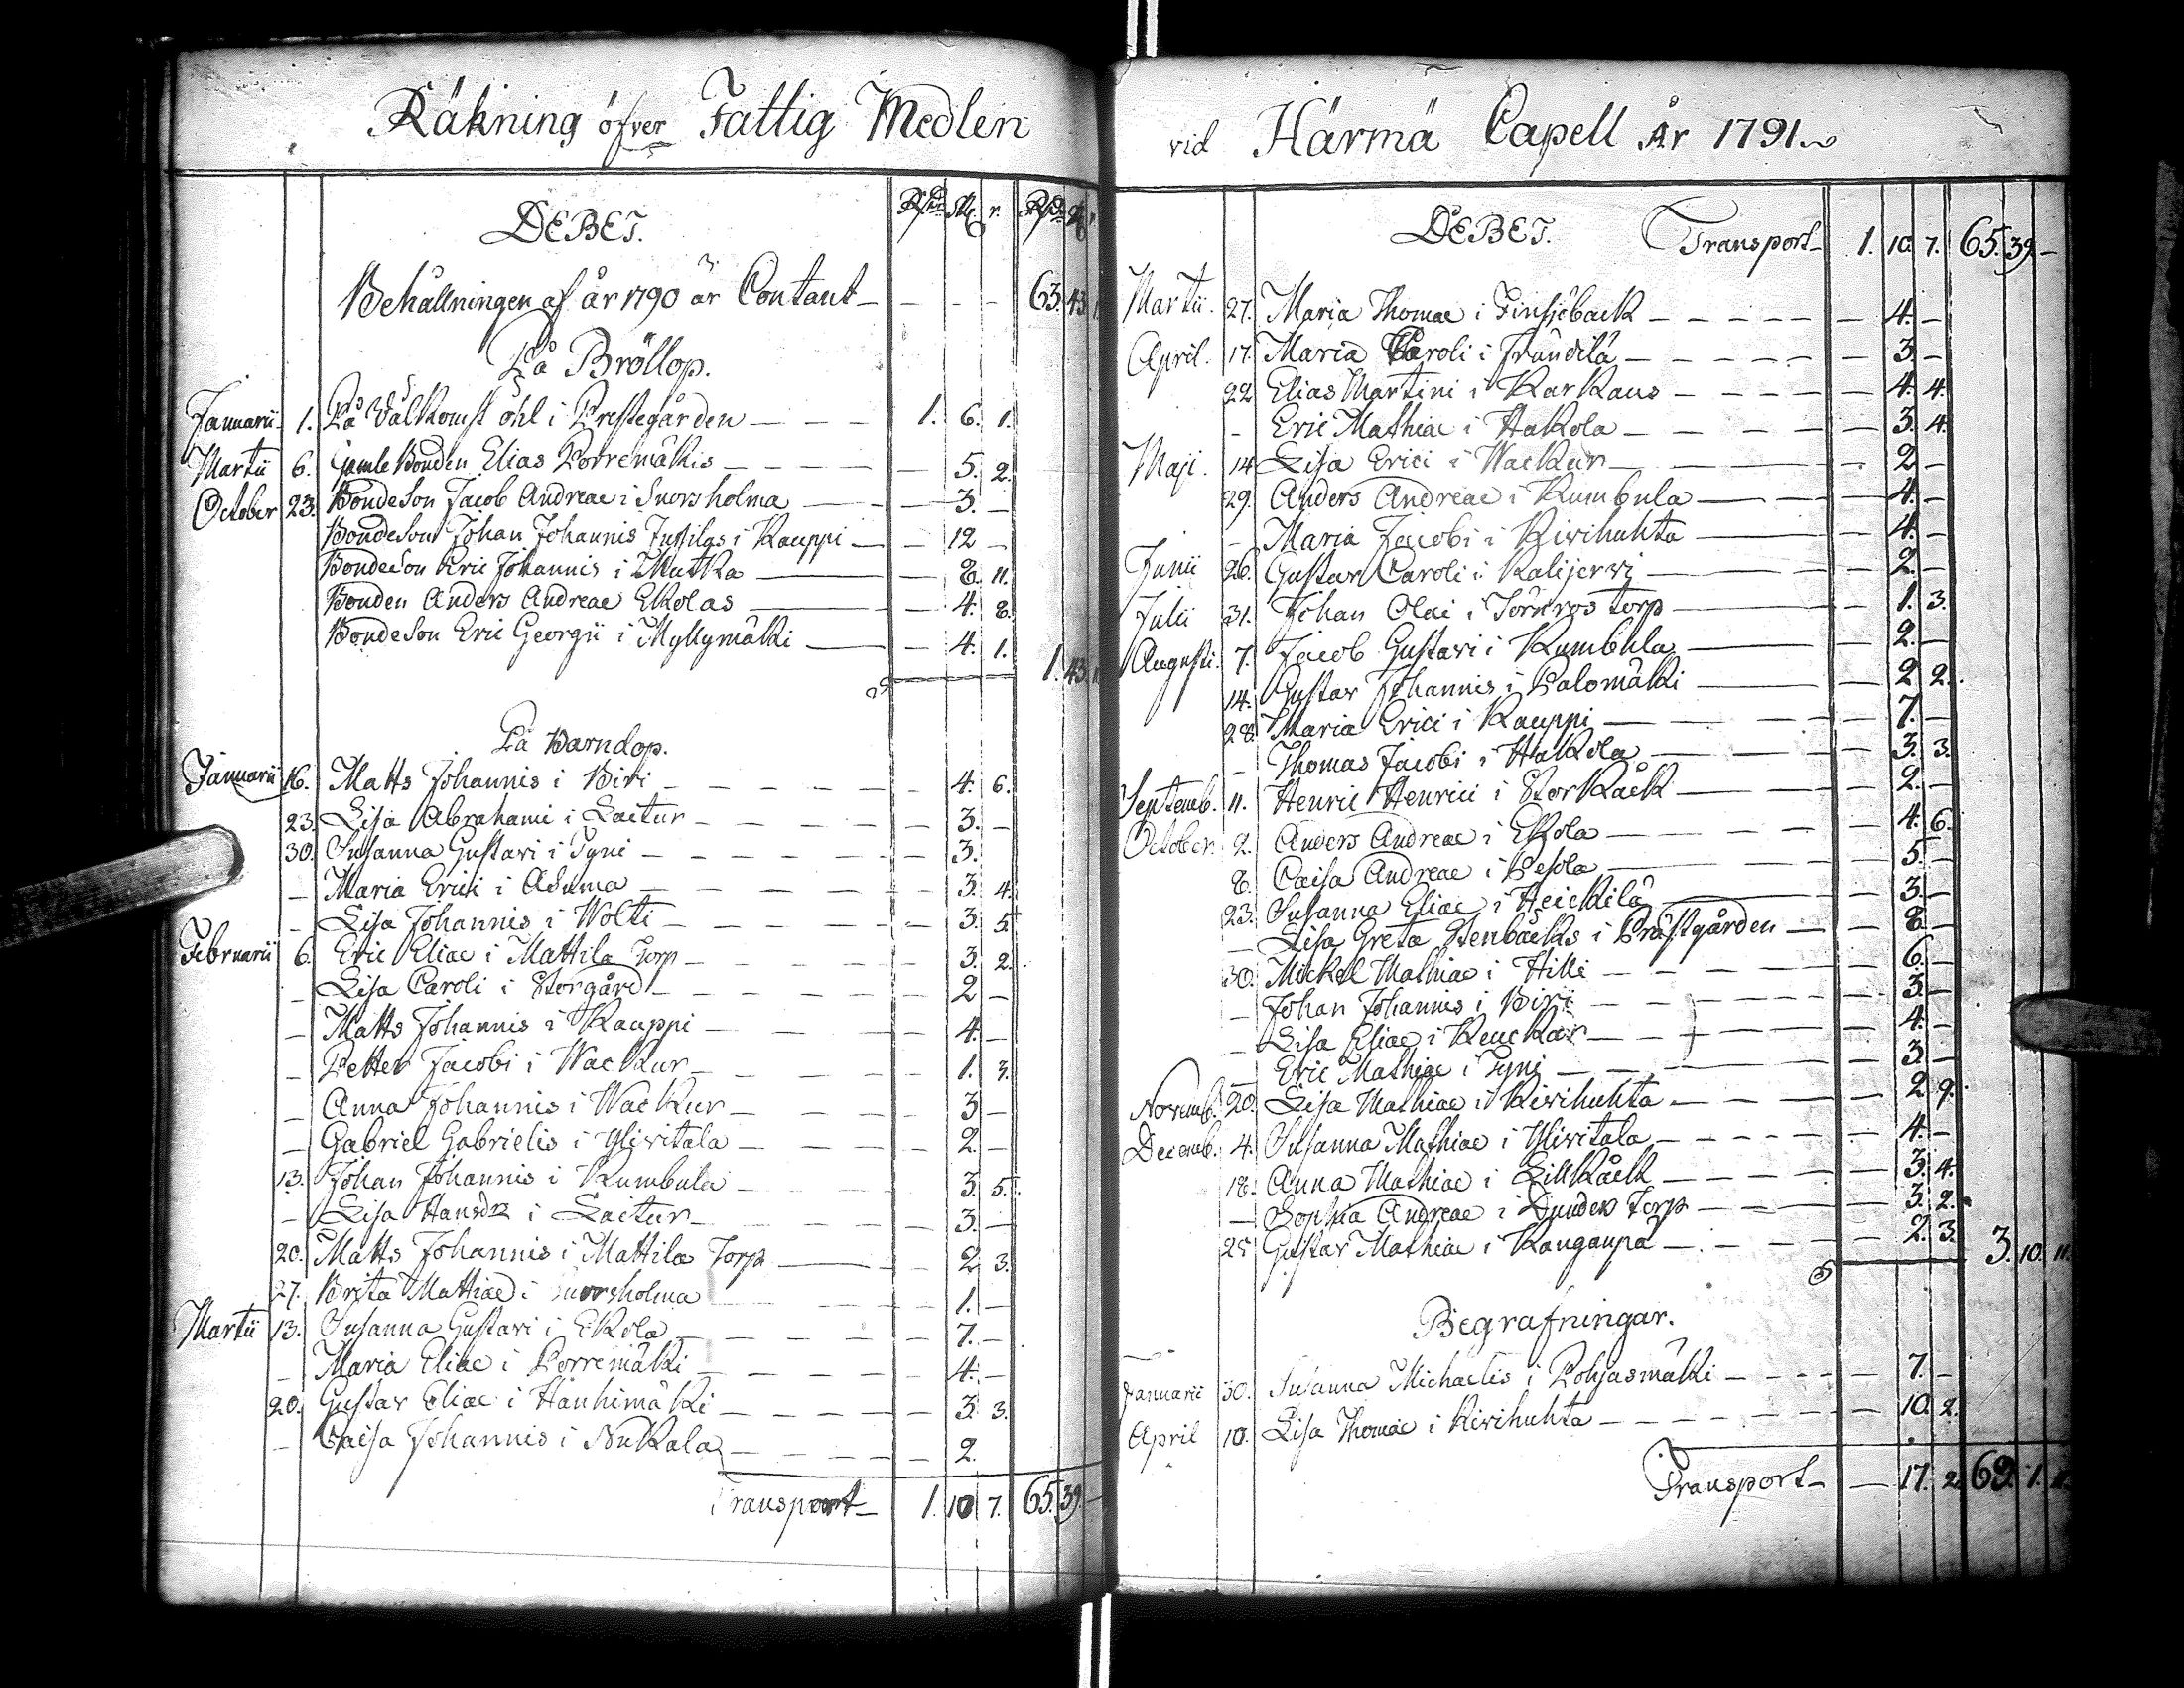 Räkning öfver Fattig Medlen
DEBET. Rdr ß. r. Rdr ß. r.
Behållningen af år 1790 är Contant — 63. 43.
På Bröllop.
Januarii 1. På Välkomst öhl i Prestegården — 1. 6. 1.
Martii 6. Gamle Bonden Elias Porremäkis — 5. 2.
October 23. Bondeson Jacob Andreae i Snorsholma — 3. —
Bondeson Johan Johannis Jussilas i Kauppi — 12 —
Bondeson Eric Johannis i Mutka — 8. 11.
Bonden Anders Andreae Ekolas — 4. 8.
Bondeson Eric Georgii i Myllymäki — 4. 1. 1. 43.
På Barndop.
Januarii 16. Matts Johannis i Biri — 4. 6.
23. Lisa Abrahami i Laitur — 3. —
30. Susanna Gustavi i Tyni — 3.
— Maria Erici i Asuma — 3. 4.
— Lisa Johannis i Wolti — 3. 5.
Februarii 6. Eric Eliae i Mattila Torp — 3. 2.
— Lisa Caroli i Storgård — 2 —
— Matts Johannis i Kauppi — 4. —
— Petter Jacobi i Wackur — 1. 3.
— Anna Johannis i Wackur — 3 —
— Gabriel Gabrielis i Ylivitala — 2. —
13. Johan Johannis i Kumbula — 3. 5.
— Lisa Hansdr i Laitur — 3. —
20. Matts Johannis i Mattila Torp — 2 3.
27. Brita Mathiae i Snorsholma — 1. —
Martii 13. Susanna Gustavi i Ekola — 7. —
— Maria Eliae i Porremäki — 4. —
20. Gustav Eliae i Hanhimäki — 3. 3.
— Caisa Johannis i Nukala — 2.
Transport — 1. 10 7. 65. 39. —
vid Härmä Capell År 1791.
DEBET. Transport — 1. 10. 7. 65. 39. —
Martii. 27. Maria Thomae i Finsjöback — 4. —
April. 17. Maria Caroli i Frändilä — 3. —
22 Elias Martini i Karkaus — 4. 4.
— Eric Mathiae i Hakola — 3. 4.
Maji. 14 Lisa Erici i Wackur — 2 —
29. Anders Andreae i Kumbula — 4. —
— Maria Jacobi i Kivihuhta — 4. —
Junii 26. Gustav Caroli i Kalijervi — 2. —
Julii 31. Johan Olai i Törnros Torp — 1. 3.
Augusti. 7. Jacob Gustavi i Kumbula — 2. —
14. Gustav Johannis i Palomäki — 2 2.
28. Maria Erici i Kauppi — 7. —
— Thomas Jacobi i Hakola — 3. 3.
Septemb. 11. Henric Henrici i Storkåck — 2. —
October. 2. Anders Andreae i Ekola — 4. 6.
8. Caisa Andreae i Pesola — 5. —
23. Susanna Eliae i Heickilä — 3. —
— Lisa Greta Stenbäcks i Prästgården — 8 —
30. Mickel Mathiae i Hilli — 6. —
— Johan Johannis i Biri — 3. —
— Lisa Eliae i Keuckar — 4. —
— Eric Mathiae i Tyni — 3. —
Novemb. 20. Lisa Mathiae i Kivihuhta — 2 9.
Decemb. 4. Susanna Mathiae i Ylivitala — 4. —
18. Anna Mathiae i Lillkåck — 3. 4.
— Sophia Andreae i Dunders Torp — 3. 2.
25 Gustav Mathiae i Kangaupa — 2. 3. 3. 10. 11.
Begrafningar.
Januarii 30. Susanna Michaelis i Pohjasmäki — 7. —
April 10. Lisa Thomae i Kivihuhta — 10. 2.
Transport — 17. 2. 69. 1. 11.